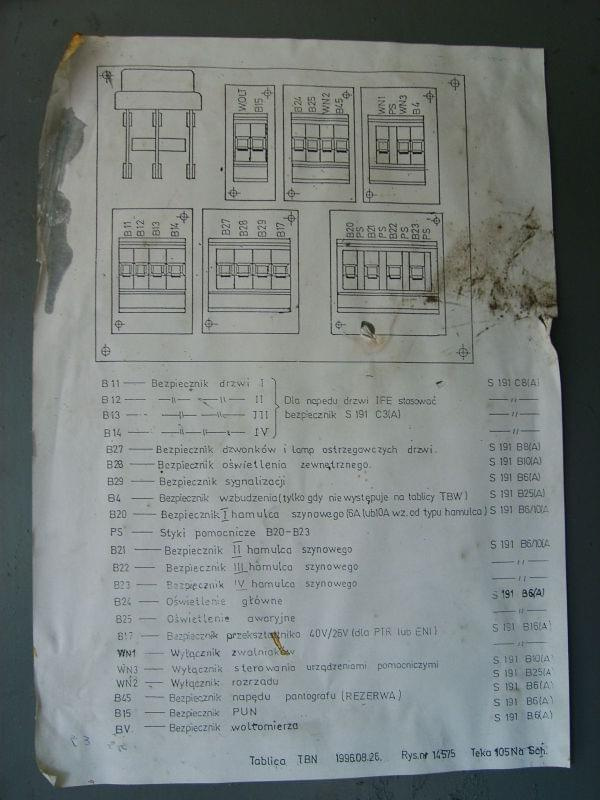 WOLT B15
B24 B25 WN2 B45
WN1 PS WN3 B4
B11 B12 B13 B14
B27 B28 B29 B17
B20 PS B21 PS B22 PS B23 PS
B11 — Bezpiecznik drzwi I S 191 C8(A)
B12 — —"— —"— II —"—
Dla napędu drzwi IFE stosować
B13 — —"— —"— III bezpiecznik S 191 C3(A) —"—
B14 — —"— —"— IV —"—
B27 — Bezpiecznik dzwonków i lamp ostrzegawczych drzwi. S 191 B8(A)
B28 — Bezpiecznik oświetlenia zewnętrznego. S 191 B10(A)
B29 — Bezpiecznik sygnalizacji S 191 B6(A)
B4 — Bezpiecznik wzbudzenia (tylko gdy nie występuje na tablicy TBW) S 191 B25(A)
B20 — Bezpiecznik I hamulca szynowego (6A lub 10A wz. od typu hamulca) S 191 B6/10(A
PS — Styki pomocnicze B20-B23
B21 — Bezpiecznik II hamulca szynowego S 191 B6/10(A
B22 — Bezpiecznik III hamulca szynowego —"—
B23 — Bezpiecznik IV hamulca szynowego —"—
B24 — Oświetlenie główne S 191 B6(A)
B25 — Oświetlenie awaryjne —"—
B17 — Bezpiecznik przekształtnika 40V/26V (dla PTR lub ENI) S 191 B16(A)
WN1 — Wyłącznik zwalniaków
WN3 — Wyłącznik sterowania urządzeniami pomocniczymi S 191 B10(A)
WN2 — Wyłącznik rozrządu S 191 B25(A)
B45 — Bezpiecznik napędu pantografu (REZERWA) S 191 B6(A)
B15 — Bezpiecznik PUN S 191 B6(A)
BV — Bezpiecznik woltomierza S 191 B6(A)
Tablica TBN 1996.08.26. Rys.nr 14575 Teka 105Na Sch.